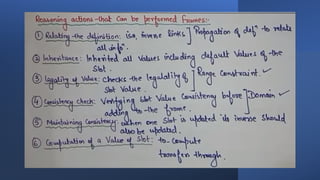 Reasoning actions that can be performed Frames:-
① Relating the definition: isa, inverse links ] Propagation of defⁿ to relate
all infoⁿ.
② Inheritance: Inherited all values including default values of the
Slot.
③ Legality of Value: Checks the legality of ] Range Constraint. ✓
Slot Value.
④ Consistency check: Verifying Slot Value Consistency before ] Domain ✓
adding to the frame.
⑤ Maintaining Consistency: when one Slot is updated its inverse Should
also be updated.
⑥ Computation of a Value of Slot: to compute
transfers through.